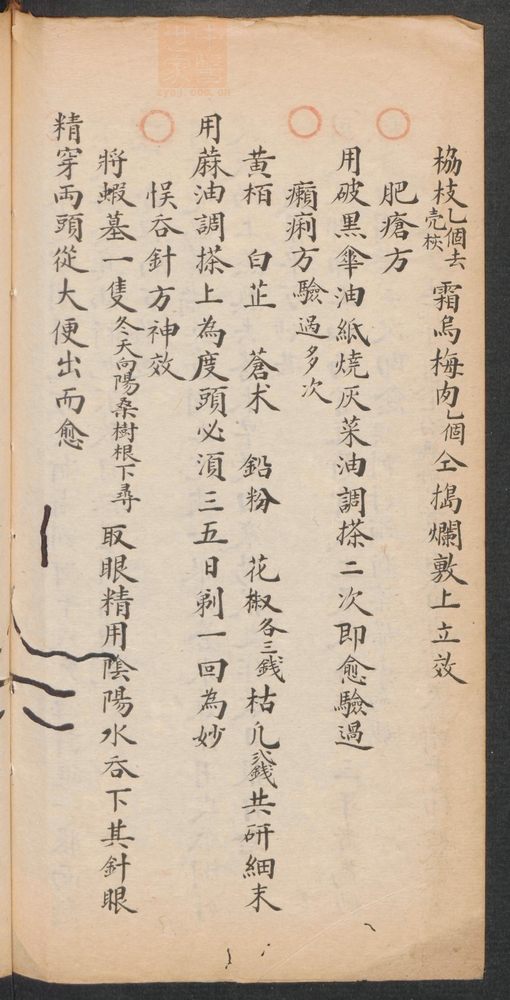 栛枝乚個去壳核霜烏梅肉乚個仝搗爛敷上立效
肥瘡方
用破黑傘油紙燒灰菜油調搽二次即愈驗過
癩痢方驗過多次
黃栢 白芷 蒼术 鉛粉 花椒各三錢枯凡弍錢共研細末
用蔴油調搽上為度頭必須三五日剃一回為妙
悮吞針方神效
將蝦蟇一隻冬天向陽桑樹根下尋取眼精用陰陽水吞下其針眼
精穿両頭從大便出而愈